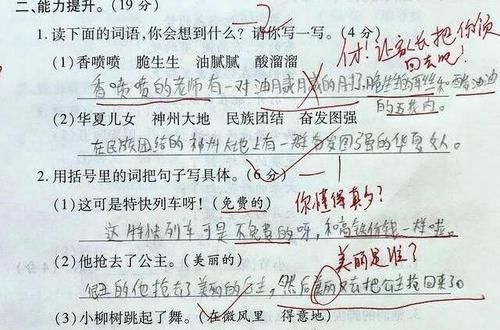 二、能力提升。(19 分)
1.读下面的词语,你会想到什么?请你写一写。(4 分)
(1)香喷喷 脆生生 油腻腻 酸溜溜
什!让家长把你领回去吧!
香喷喷的老师有一对油腻腻的
的五花肉。
(2)华夏儿女 神州大地 民族团结 奋发图强
在民族团结的神州大地上有一群奋发图强的华夏女人。
2.用括号里的词把句子写具体。(6 分)
(1)这可是特快列车呀!(免费的)
你懂得真多?
这特快列车可是不免费的呀,和高铁价钱一样啦。
(2)他抢去了公主。(美丽的)
美丽是谁?
的他抢去了美丽的公主,然后美丽又去把公主抢回来了。
(3)小柳树跳起了舞。(在微风里 得意地)